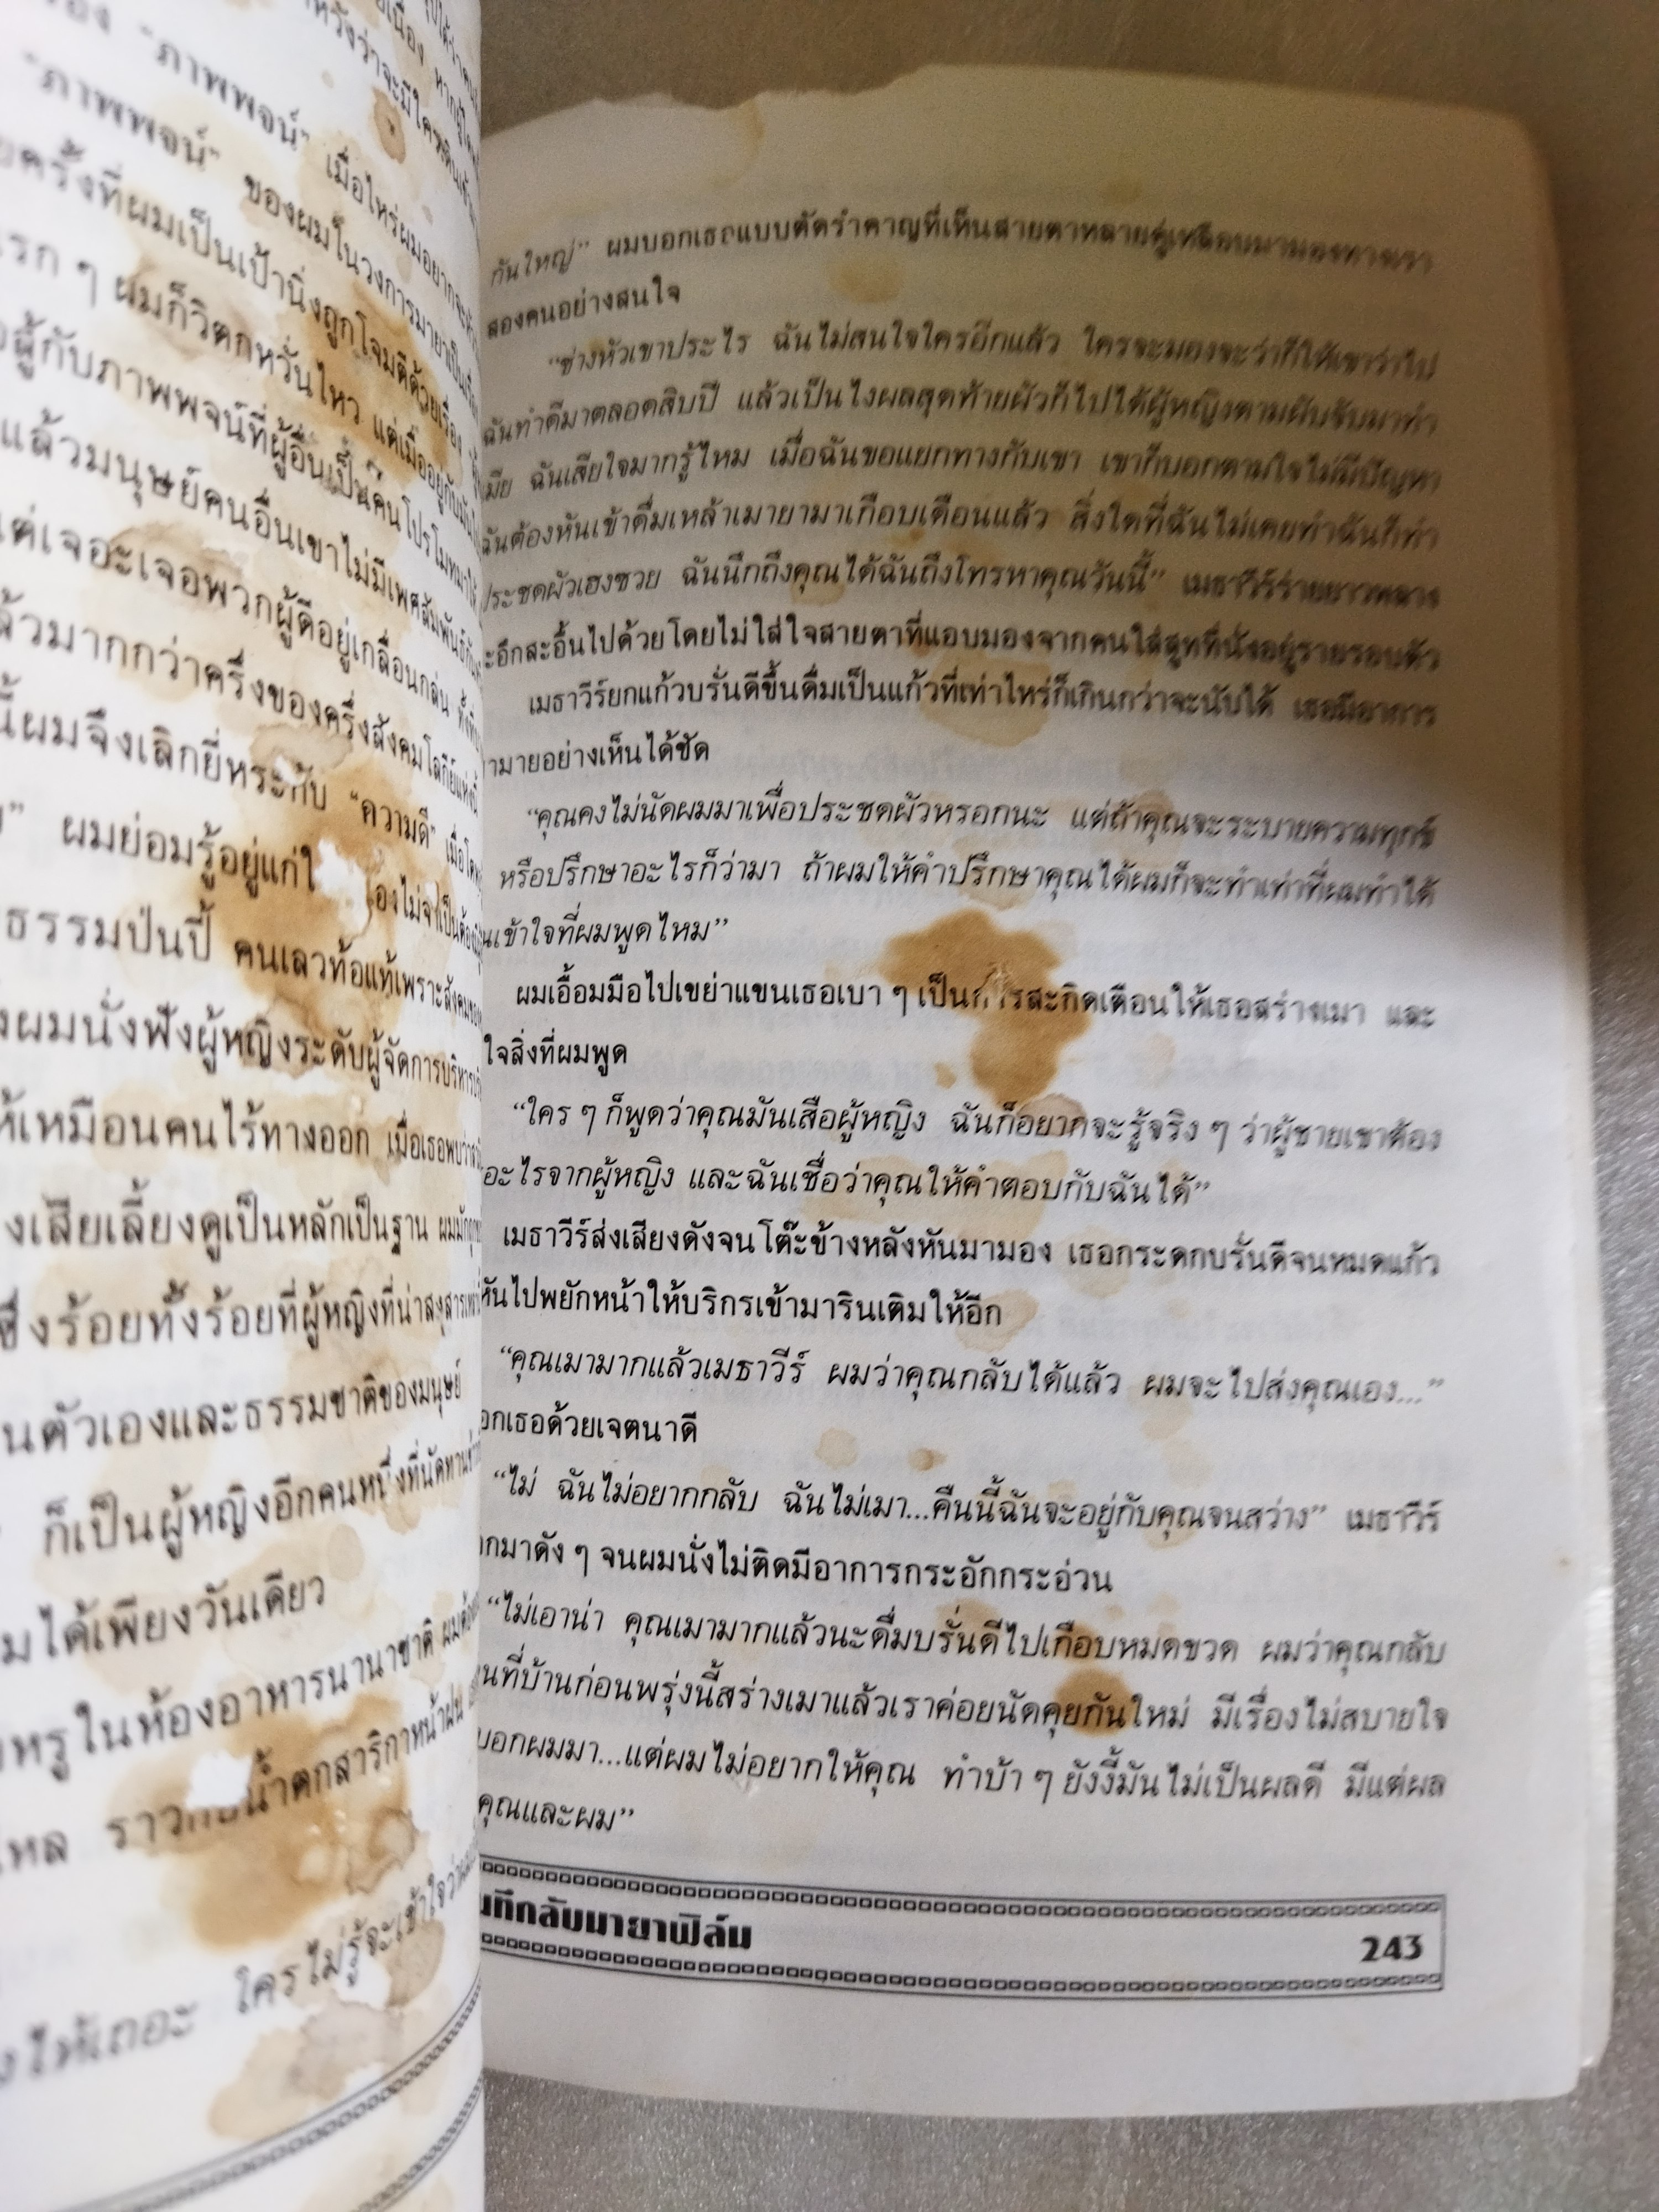 อง “ภาพพจน์” เมื่อไหร่ผมอยากจะ
“ภาพพจน์” ของผมในวงการมายาเป็นเรื่อง
ครั้งที่ผมเป็นเป้านิ่งถูกโจมตีด้วยเรื่อง
แรก ๆ ผมก็วิตกหวั่นไหว แต่เมื่ออยู่กับมัน
สู้กับภาพพจน์ที่ผู้อื่นเป็นคนโปรโมท
แล้วมนุษย์คนอื่นเขาไม่มีเพศสัมพันธ์กัน
แต่เจอะเจอพวกผู้ดีอยู่เกลื่อนกล่น
ล้วมากกว่าครึ่งของครึ่งสังคมโลกีย์แห่งนี้
นี้ผมจึงเลิกยี่หระกับ “ความดี”
ผมย่อมรู้อยู่แก่ใ องไม่จำเป็นต้อง
ธรรมป่นปี้ คนเลวท้อแท้เพราะสังคม
ผมนั่งฟังผู้หญิงระดับผู้จัดการบริหาร
ห้เหมือนคนไร้ทางออก เมื่อเธอพบว่า
งเสียเลี้ยงดูเป็นหลักเป็นฐาน ผมมัก
ซึ่งร้อยทั้งร้อยที่ผู้หญิงที่น่าสงสาร
นตัวเองและธรรมชาติของมนุษย์
ก็เป็นผู้หญิงอีกคนหนึ่งที่นัดทาน
มได้เพียงวันเดียว
หรูในห้องอาหารนานาชาติ
ไหล ราวกับน้ำตกสาริกาหน้าฝน
งให้เถอะ ใครไม่รู้จะเข้าใจว่า
กันใหญ่” ผมบอกเธอแบบตัดรำคาญที่เห็นสายตาหลายคู่เหลือบมามองทางเรา
สองคนอย่างสนใจ
“ช่างหัวเขาประไร ฉันไม่สนใจใครอีกแล้ว ใครจะมองจะว่าก็ให้เขาว่าไป
ฉันทำดีมาตลอดสิบปี แล้วเป็นไงผลสุดท้ายผัวก็ไปได้ผู้หญิงตามผับจับมาทำ
เมีย ฉันเสียใจมากรู้ไหม เมื่อฉันขอแยกทางกับเขา เขาก็บอกตามใจไม่มีปัญหา
ฉันต้องหันเข้าดื่มเหล้าเมายามาเกือบเดือนแล้ว สิ่งใดที่ฉันไม่เคยทำฉันก็ทำ
ประชดผัวเฮงซวย ฉันนึกถึงคุณได้ฉันถึงโทรหาคุณวันนี้” เมธาวีร์ร่ายยาวพลาง
ะอึกสะอื้นไปด้วยโดยไม่ใส่ใจสายตาที่แอบมองจากคนใส่สูทที่นั่งอยู่รายรอบตัว
เมธาวีร์ยกแก้วบรั่นดีขึ้นดื่มเป็นแก้วที่เท่าไหร่ก็เกินกว่าจะนับได้ เธอมีอาการ
ามายอย่างเห็นได้ชัด
“คุณคงไม่นัดผมมาเพื่อประชดผัวหรอกนะ แต่ถ้าคุณจะระบายความทุกข์
หรือปรึกษาอะไรก็ว่ามา ถ้าผมให้คำปรึกษาคุณได้ผมก็จะทำเท่าที่ผมทำได้
เข้าใจที่ผมพูดไหม”
ผมเอื้อมมือไปเขย่าแขนเธอเบา ๆ เป็นการสะกิดเตือนให้เธอสร่างเมา และ
ใจสิ่งที่ผมพูด
“ใคร ๆ ก็พูดว่าคุณมันเสือผู้หญิง ฉันก็อยากจะรู้จริง ๆ ว่าผู้ชายเขาต้อง
อะไรจากผู้หญิง และฉันเชื่อว่าคุณให้คำตอบกับฉันได้”
เมธาวีร์ส่งเสียงดังจนโต๊ะข้างหลังหันมามอง เธอกระดกบรั่นดีจนหมดแก้ว
หันไปพยักหน้าให้บริกรเข้ามารินเติมให้อีก
“คุณเมามากแล้วเมธาวีร์ ผมว่าคุณกลับได้แล้ว ผมจะไปส่งคุณเอง...”
อกเธอด้วยเจตนาดี
“ไม่ ฉันไม่อยากกลับ ฉันไม่เมา...คืนนี้ฉันจะอยู่กับคุณจนสว่าง” เมธาวีร์
กมาดัง ๆ จนผมนั่งไม่ติดมีอาการกระอักกระอ่วน
“ไม่เอาน่า คุณเมามากแล้วนะดื่มบรั่นดีไปเกือบหมดขวด ผมว่าคุณกลับ
นที่บ้านก่อนพรุ่งนี้สร่างเมาแล้วเราค่อยนัดคุยกันใหม่ มีเรื่องไม่สบายใจ
บอกผมมา...แต่ผมไม่อยากให้คุณ ทำบ้า ๆ ยังงี้มันไม่เป็นผลดี มีแต่ผล
คุณและผม”
นทึกลับมายาฟิล์ม 243